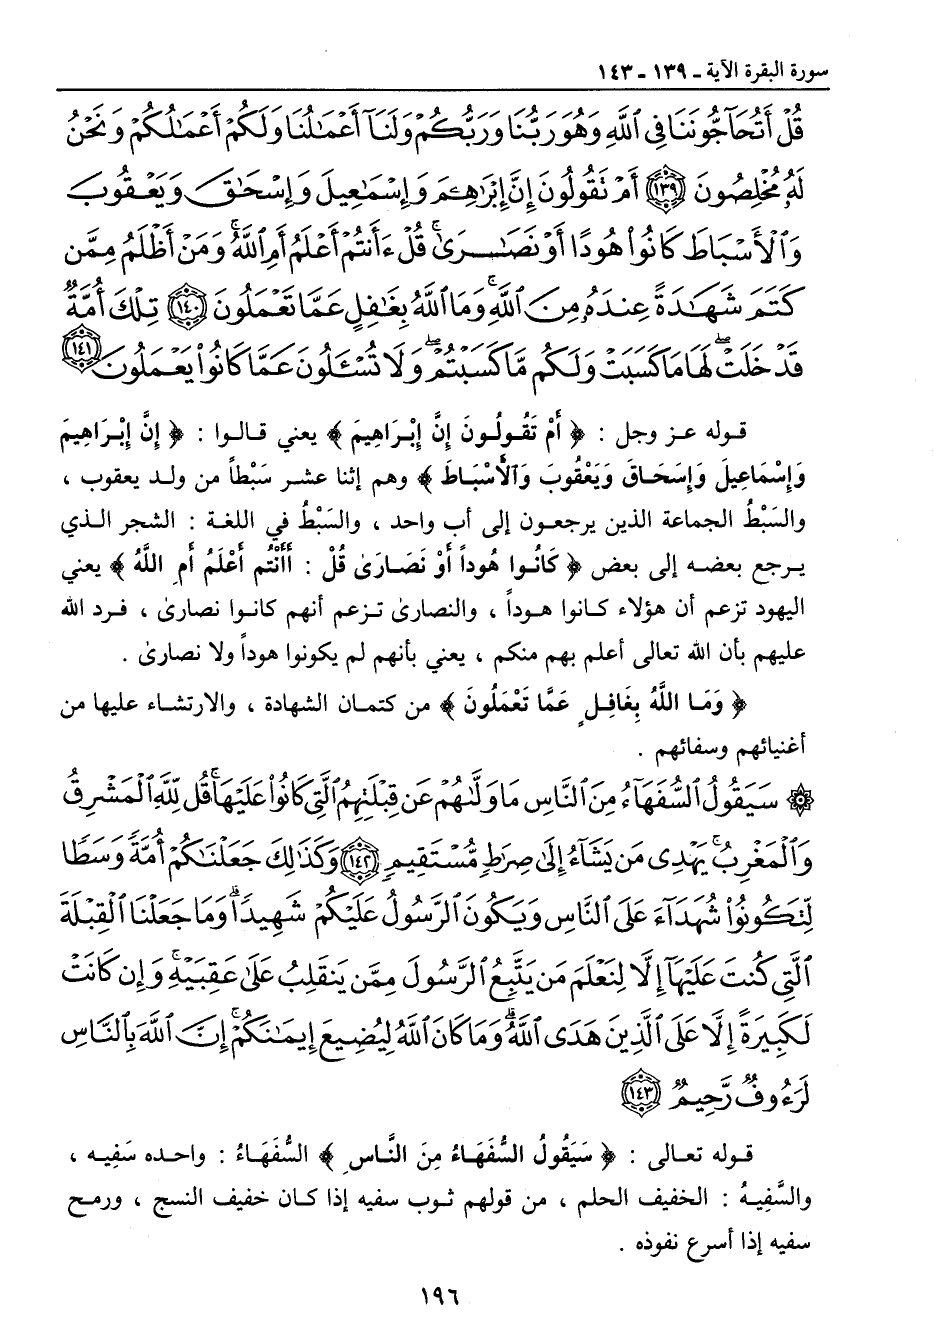 سورة البقرة الآية ـ ١٣٩ ـ ١٤٣
قُلۡ أَتُحَآجُّونَنَا فِي ٱللَّهِ وَهُوَ رَبُّنَا وَرَبُّكُمۡ وَلَنَآ أَعۡمَٰلُنَا وَلَكُمۡ أَعۡمَٰلُكُمۡ وَنَحۡنُ
لَهُۥ مُخۡلِصُونَ ١٣٩ أَمۡ تَقُولُونَ إِنَّ إِبۡرَٰهِـۧمَ وَإِسۡمَٰعِيلَ وَإِسۡحَٰقَ وَيَعۡقُوبَ
وَٱلۡأَسۡبَاطَ كَانُواْ هُودًا أَوۡ نَصَٰرَىٰۗ قُلۡ ءَأَنتُمۡ أَعۡلَمُ أَمِ ٱللَّهُۗ وَمَنۡ أَظۡلَمُ مِمَّن
كَتَمَ شَهَٰدَةً عِندَهُۥ مِنَ ٱللَّهِۗ وَمَا ٱللَّهُ بِغَٰفِلٍ عَمَّا تَعۡمَلُونَ ١٤٠ تِلۡكَ أُمَّةٞ
قَدۡ خَلَتۡۖ لَهَا مَا كَسَبَتۡ وَلَكُم مَّا كَسَبۡتُمۡۖ وَلَا تُسۡـَٔلُونَ عَمَّا كَانُواْ يَعۡمَلُونَ ١٤١
قوله عز وجل : ﴿ أَمْ تَقُولُونَ إِنَّ إِبْرَاهِيمَ ﴾ يعني قالوا : ﴿ إِنَّ إِبْرَاهِيمَ
وَإِسْمَاعِيلَ وَإِسَحَاقَ وَيَعْقُوبَ وَالأَسْبَاطَ ﴾ وهم إثنا عشر سَبْطاً من ولد يعقوب ،
والسَبْطُ الجماعة الذين يرجعون إلى أب واحد ، والسَبْطُ في اللغة : الشجر الذي
يرجع بعضه إلى بعض ﴿ كَانُوا هُوداً أَوْ نَصَارَىٰ قُلْ : أَأَنْتُم أَعْلَمُ أَمِ اللَّهُ ﴾ يعني
اليهود تزعم أن هؤلاء كانوا هوداً ، والنصارىٰ تزعم أنهم كانوا نصارىٰ ، فرد الله
عليهم بأن الله تعالى أعلم بهم منكم ، يعني بأنهم لم يكونوا هوداً ولا نصارىٰ .
﴿ وَمَا اللَّهُ بِغَافِلٍ عَمَّا تَعْمَلُونَ ﴾ من كتمان الشهادة ، والارتشاء عليها من
أغنيائهم وسفائهم .
۞ سَيَقُولُ ٱلسُّفَهَآءُ مِنَ ٱلنَّاسِ مَا وَلَّىٰهُمۡ عَن قِبۡلَتِهِمُ ٱلَّتِي كَانُواْ عَلَيۡهَاۚ قُل لِّلَّهِ ٱلۡمَشۡرِقُ
وَٱلۡمَغۡرِبُۚ يَهۡدِي مَن يَشَآءُ إِلَىٰ صِرَٰطٖ مُّسۡتَقِيمٖ ١٤٢ وَكَذَٰلِكَ جَعَلۡنَٰكُمۡ أُمَّةٗ وَسَطٗا
لِّتَكُونُواْ شُهَدَآءَ عَلَى ٱلنَّاسِ وَيَكُونَ ٱلرَّسُولُ عَلَيۡكُمۡ شَهِيدٗاۗ وَمَا جَعَلۡنَا ٱلۡقِبۡلَةَ
ٱلَّتِي كُنتَ عَلَيۡهَآ إِلَّا لِنَعۡلَمَ مَن يَتَّبِعُ ٱلرَّسُولَ مِمَّن يَنقَلِبُ عَلَىٰ عَقِبَيۡهِۚ وَإِن كَانَتۡ
لَكَبِيرَةً إِلَّا عَلَى ٱلَّذِينَ هَدَى ٱللَّهُۗ وَمَا كَانَ ٱللَّهُ لِيُضِيعَ إِيمَٰنَكُمۡۚ إِنَّ ٱللَّهَ بِٱلنَّاسِ
لَرَءُوفٞ رَّحِيمٞ ١٤٣
قوله تعالى : ﴿ سَيَقُولُ السُّفَهَاءُ مِنَ النَّاسِ ﴾ السُّفَهَاءُ : واحده سَفِيه ،
والسَّفِيهُ : الخفيف الحلم ، من قولهم ثوب سفيه إذا كان خفيف النسج ، ورمح
سفيه إذا أسرع نفوذه .
١٩٦